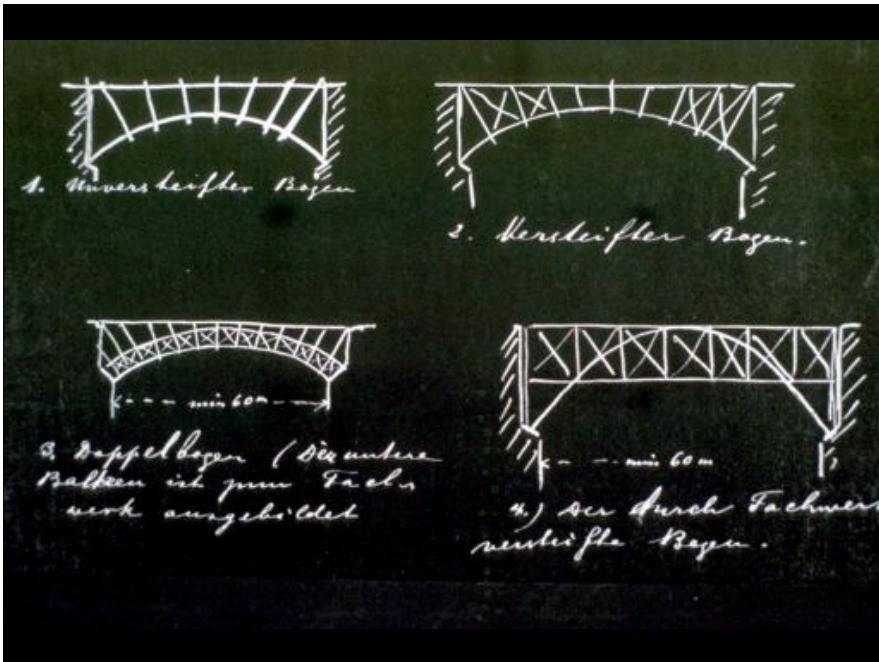 1. Unversteifter Bogen
2. Versteifter Bogen.
min 60 m
3. Doppelbogen (Der untere
Balken ist zum Fach-
werk ausgebildet
min 60 m
4.) Der durch Fachwerk
versteifte Bogen.